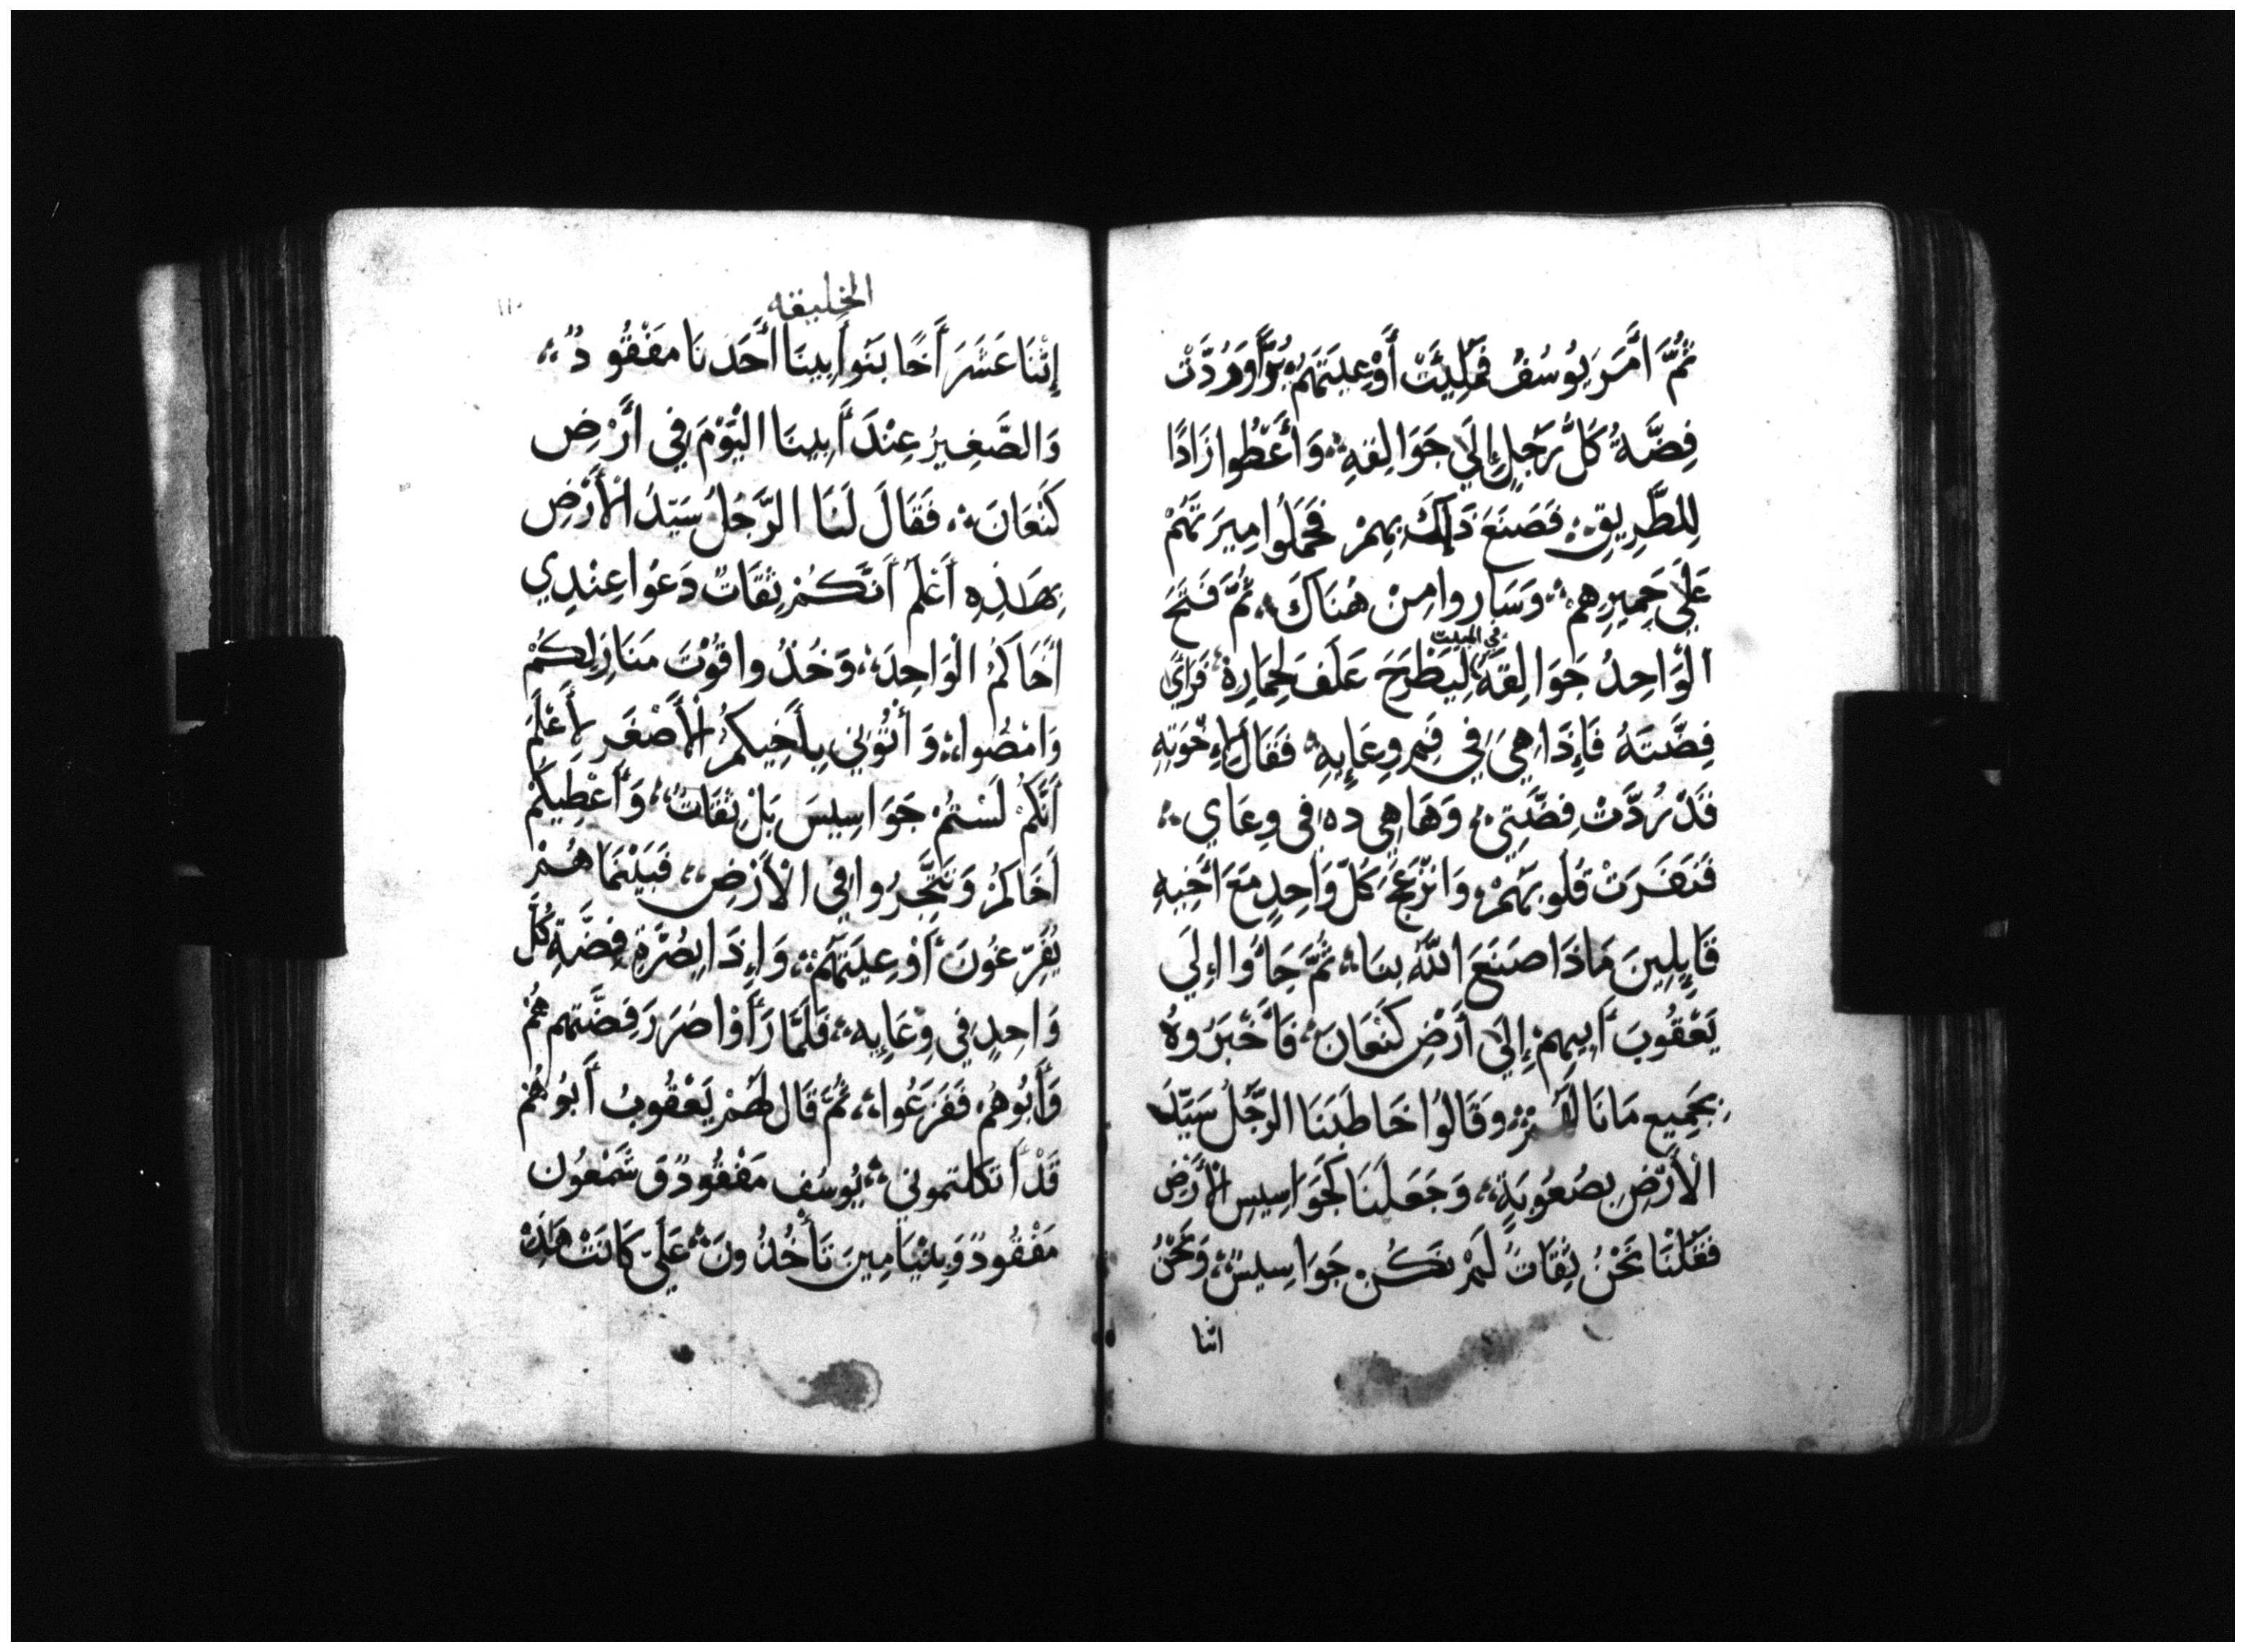 ثُمَّ اَمَرَ يُوسُفُ فَمُلِيَتْ أَوْعِيَتَهُمْ بُرًّا وَرُدَّتْ
فِضَّةُ كَلُ رَجُلٍ إِلَي جَوَالِقِهِ وَأَعْطُوا زَادًا
لِلطَّرِيقِ فَصَنَعَ ذَلِكَ بِهِمْ فَحَمَلُوا مِيرَتَهُمْ
عَلَي حَمِيرِهِمْ وَسَارُوا مِنْ هُنَاكَ ثُمَّ فَتَحَ
الْوَاحِدُ جَوَالِقَهُ في المبيت لِيَطْرَحَ عَلَفَ لِحِمَارِهِ فَرَأَي
فِضَّتَهُ فَإِذَا هِيَ فِي فَمِ وِعَايِهِ فَقَالَ لِإِخْوَتِهِ
قَدْ رُدَّتْ فِضَّتِي وَهَا هِي ده فِي وِعَاي
فَنَفَرَتْ قُلُوبَهُمْ وَانْزَعَجَ كَلُّ وَاحِدٍ مَعَ اَخِيهِ
قَايِلِينَ مَاذَا صَنَعَ اللَّهُ بِنَا ثُمَّ جَاؤُا إِلَي
يَعْقُوبَ أَبِيهِمْ إِلَي أَرْضِ كَنْعَانَ فَأَخْبَرُوهُ
بِجَمِيعِ مَا نَالَهُمْ وَقَالُوا خَاطَبَنَا الرَّجُلُ سَيِّدُ
الْأَرْضِ بِصُعُوبَةٍ وَجَعَلَنَا كَجَوَاسِيسِ الْأَرْضِ
فَقُلْنَا نَحْنُ ثِقَاتٌ لَمْ نَكُنْ جَوَاسِيسُ وَنَحْنُ
اثنا
الخليقه
١١٠
إِثْنَا عَشَرَ أَخًا بَنُوا أَبِينَا أَحَدُنَا مَفْقُودٌ
وَالصَّغِيرُ عِنْدَ أَبِينَا الْيَوْمَ فِي أَرْضِ
كَنْعَانَ فَقَالَ لَنَا الرَّجُلُ سَيِّدُ الْأَرْضِ
بِهَذِهِ أَعْلَمُ اَنَّكُمْ ثِقَاتٌ دَعُوا عِنْدِي
اَخَاكُمُ الْوَاحِدَ وَخُذُوا قُوْتَ مَنَازِلِكُمْ
وَامْضُوا وَأْتُونِي بِأَخِيكُمُ الْأَصْغَرِ لِأَعْلَمَ
أَنَّكُمْ لَسْتُمْ جَوَاسِيسَ بَلْ ثِقَاتٌ وَأُعْطِيكُمْ
اَخَاكُمْ وَتَتَّجِرُوا فِي الْأَرْضِ فَبَيْنَمَا هُمْ
يُفَرِّغُونَ أَوْعِيَتَهُمْ وَإِذَا بِصُرَّةِ فِضَّةِ كُلِّ
وَاحِدٍ فِي وِعَايِهِ فَلَمَّا رَأَوْا صُرَرَ فِضَّتِهِم هُمْ
وَأَبُوهُمْ فَفَزَعُوا ثُمَّ قَالَ لَهُمْ يَعْقُوبُ أَبُوهُمْ
قَدْ أَثكلتموني يُوسُفَ مَفْقُودٌ وَشَمْعُون
مَفْقُودٌ وَبِنْيَامِينَ تَأْخُذُونَ عَلَيَّ كَانَتْ هَذِهْ